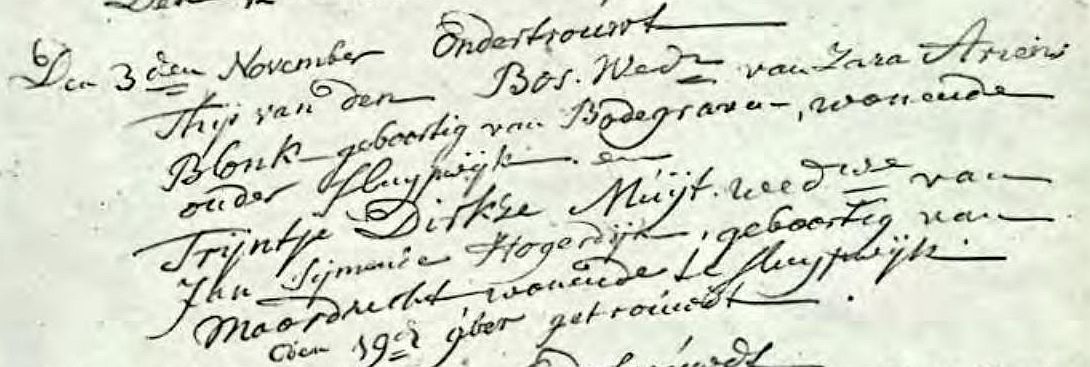 6
Den 3den November Ondertrouwt
Thijs van den Bos. Wedr van Zara Ariens
Blonk geboortig van Bodegraven, wonende
onder Sluypwijk. en
Trijntje Dirkse Muijt. weedwe van
Jan Sijmense Hogerdijk, geboortig van
Moordrecht wonende te Sluypwijk.
den 19e 9ber getrouwt.